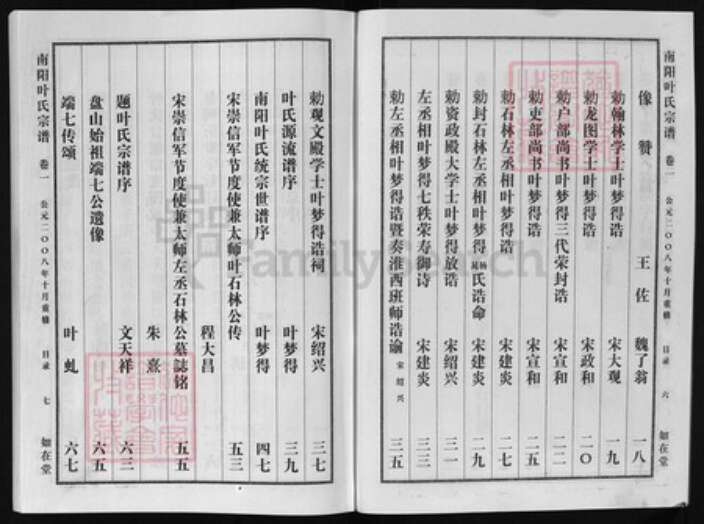 南阳叶氏宗谱 卷一 公元二〇〇八年十月重修 目录 六 如在堂
像赞 王佐 魏了翁 一八
勅翰林学士叶梦得诰 宋大观 一九
勅龙图学士叶梦得诰 宋政和 二〇
勅户部尚书叶梦得三代荣封诰 宋宣和 二二
勅吏部尚书叶梦得诰 宋宣和 二五
勅石林左丞相叶梦得诰 宋建炎 二七
勅封石林左丞相叶梦得 氏诰命 宋建炎 二九
勅资政殿大学士叶梦得放诰 宋绍兴 三一
左丞相叶梦得七秩荣寿御诗 宋建炎 三三
勅左丞相叶梦得诰暨奏淮西班师诰谕 宋绍兴 三五
勅观文殿学士叶梦得诰祠 宋绍兴 三七
叶氏源流谱序 叶梦得 三九
南阳叶氏统宗世谱序 叶梦得 四七
宋崇信军节度使兼太师叶石林公传 五三
程大昌
宋崇信军节度使兼太师左丞石林公墓誌铭 五五
朱熹
题叶氏宗谱序 文天祥 六三
盘山始祖端七公遗像 六五
端七传颂 叶虬 六七
南阳叶氏宗谱 卷一 公元二〇〇八年十月重修 目录 七 如在堂
FamilySearch